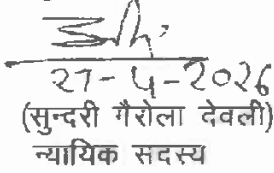 27-4-2026
(सुन्दरी गैरोला देवली)
न्यायिक सदस्य